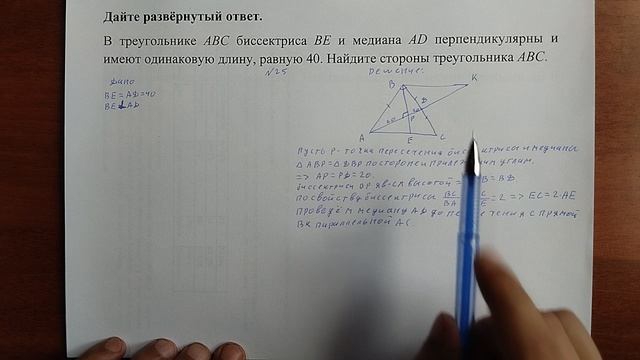 Дайте развёрнутый ответ.
В треугольнике ABC биссектриса BE и медиана AD перпендикулярны и
имеют одинаковую длину, равную 40. Найдите стороны треугольника ABC.
N25 Решение:
Дано
BE=AD=40
BE⊥AD
B K
D
P
A E C
Пусть P - точка пересечения биссектрисы и медианы
△ABP=△DBP по стороне и прилежащим углам.
=> AP=PD=20.
биссектриса BP явл-ся высотой = B=BD
По свойству биссектрисы BC/BA =2 => EC=2·AE
Проведём медиану AD до с прямой
BK параллельной AC.